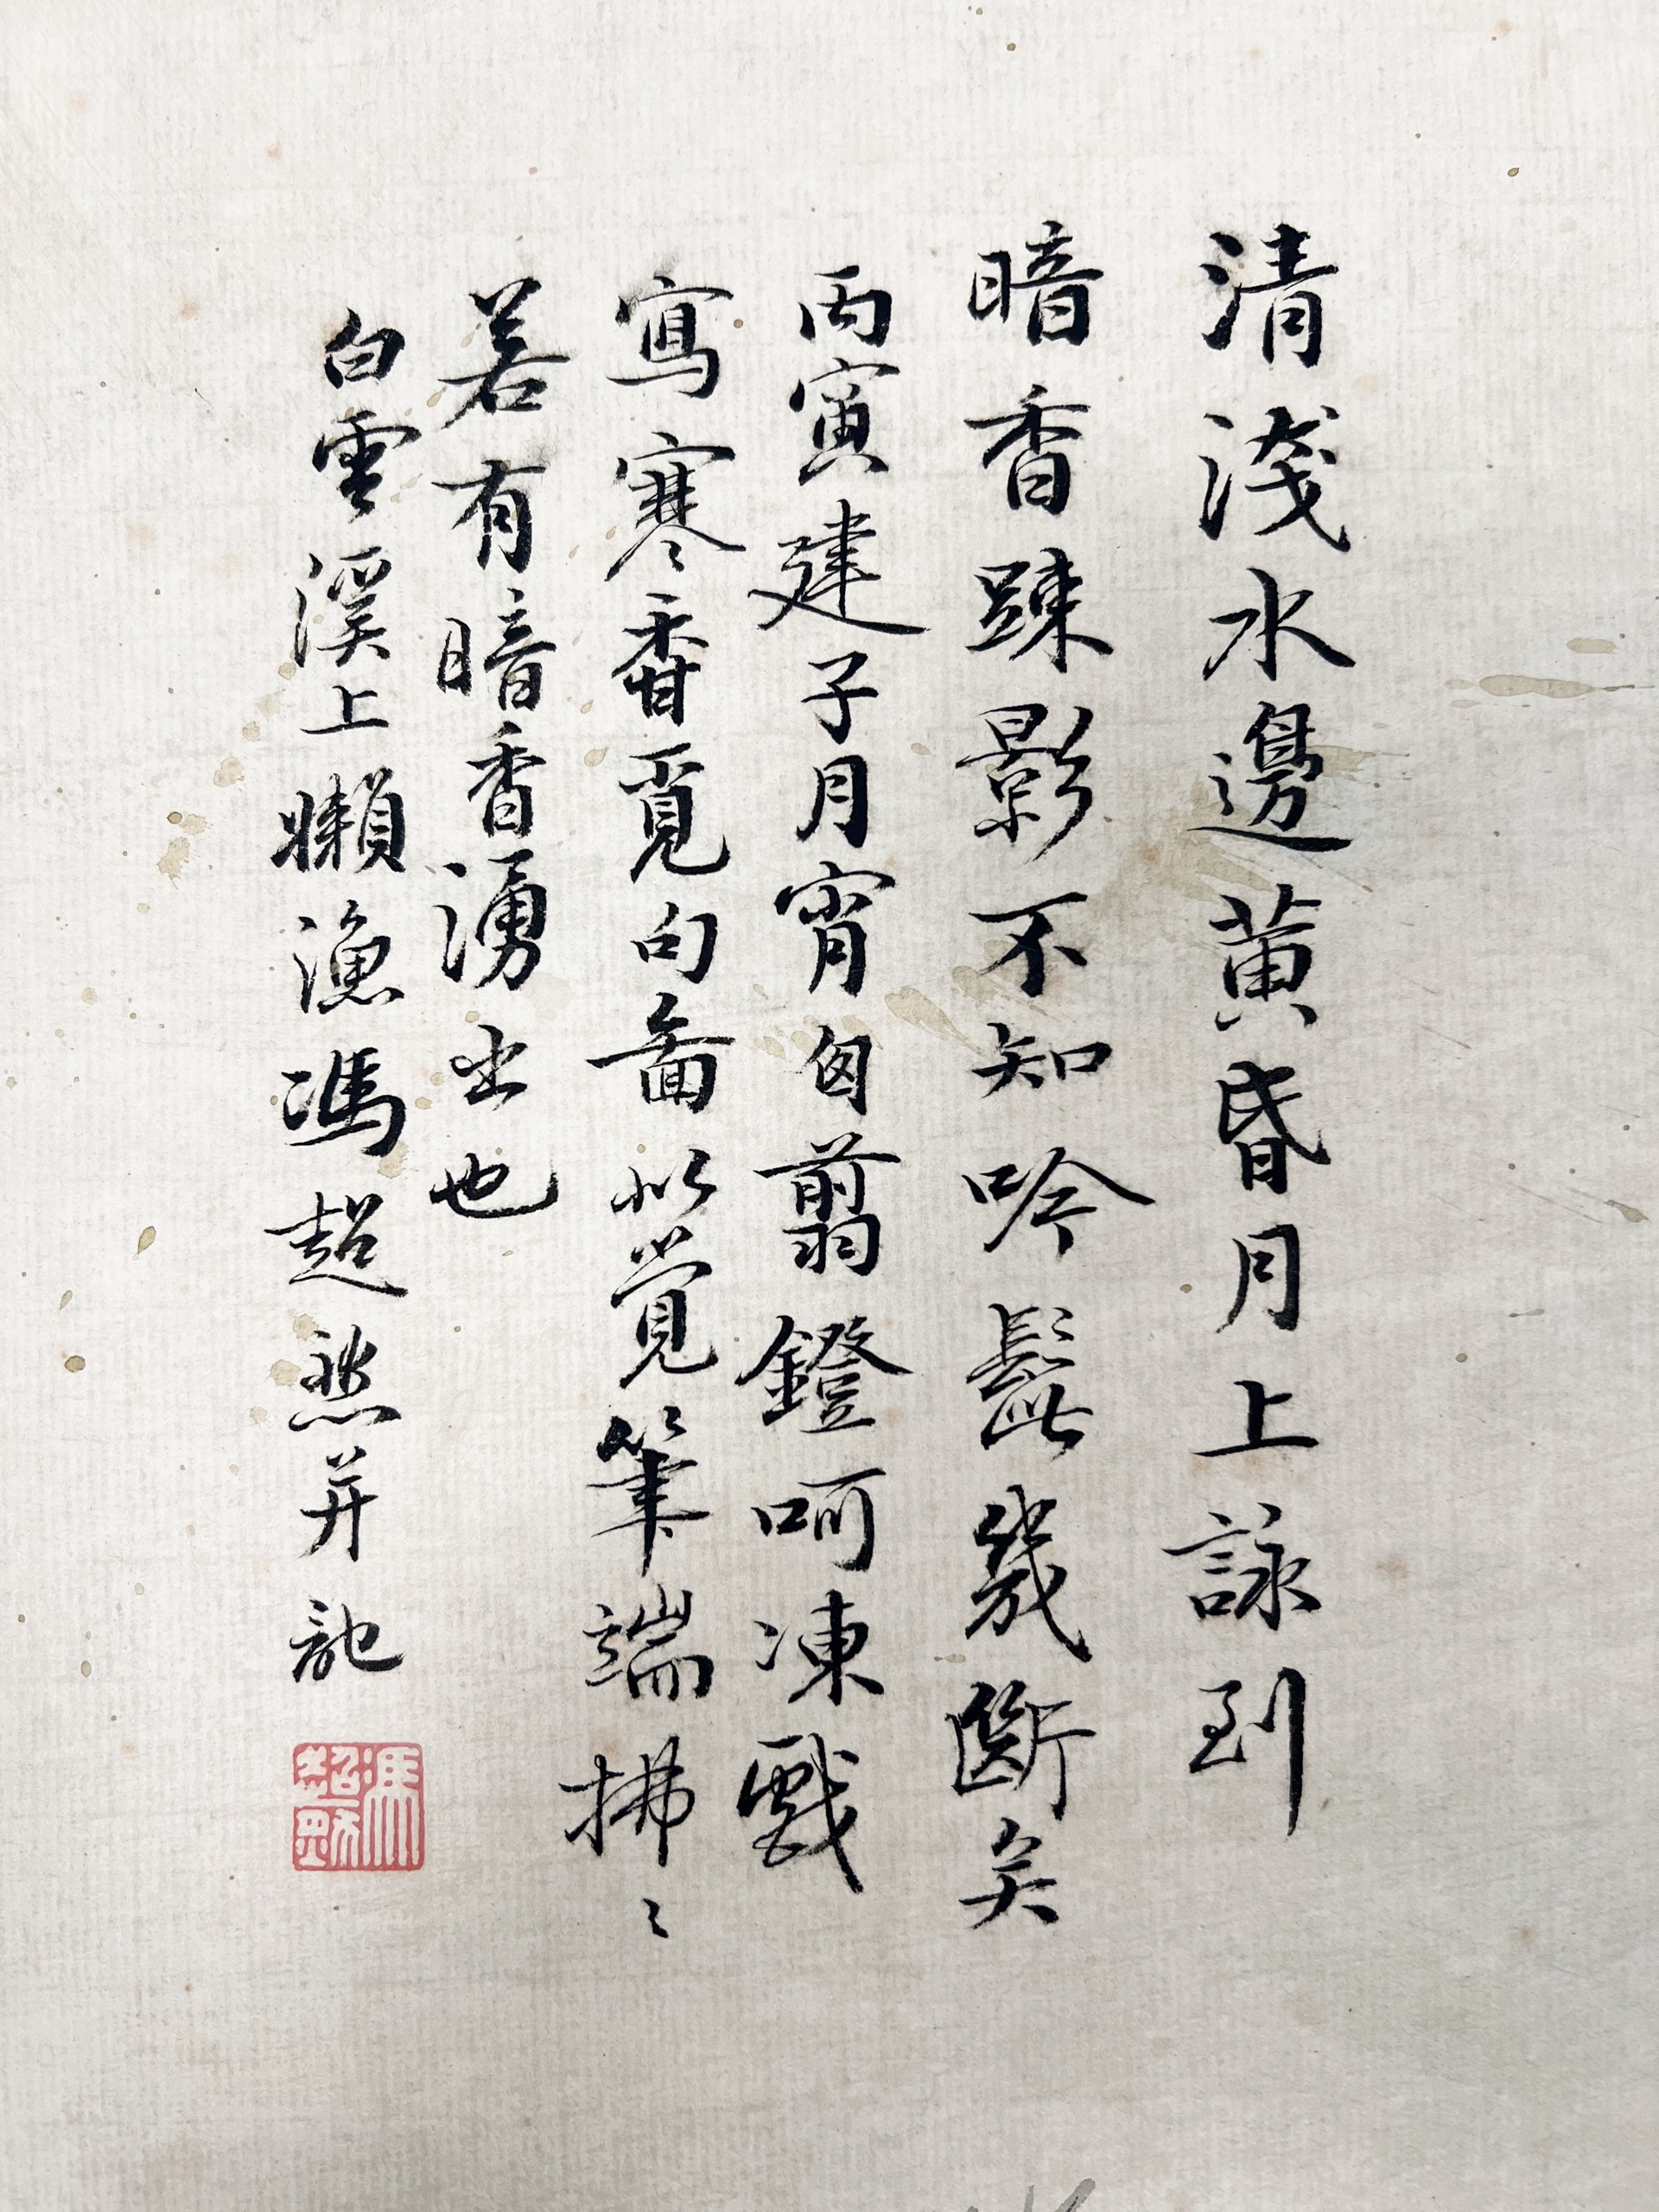 清淺水邊黃昏月上詠到
暗香踈影不知吟髭幾斷矣
丙寅建子月宵囱翦鐙呵凍戲
寫寒香覓句啚似覺筆端拂〻
若有暗香湧出也
白雲溪上嬾漁馮超然并記
馮超然